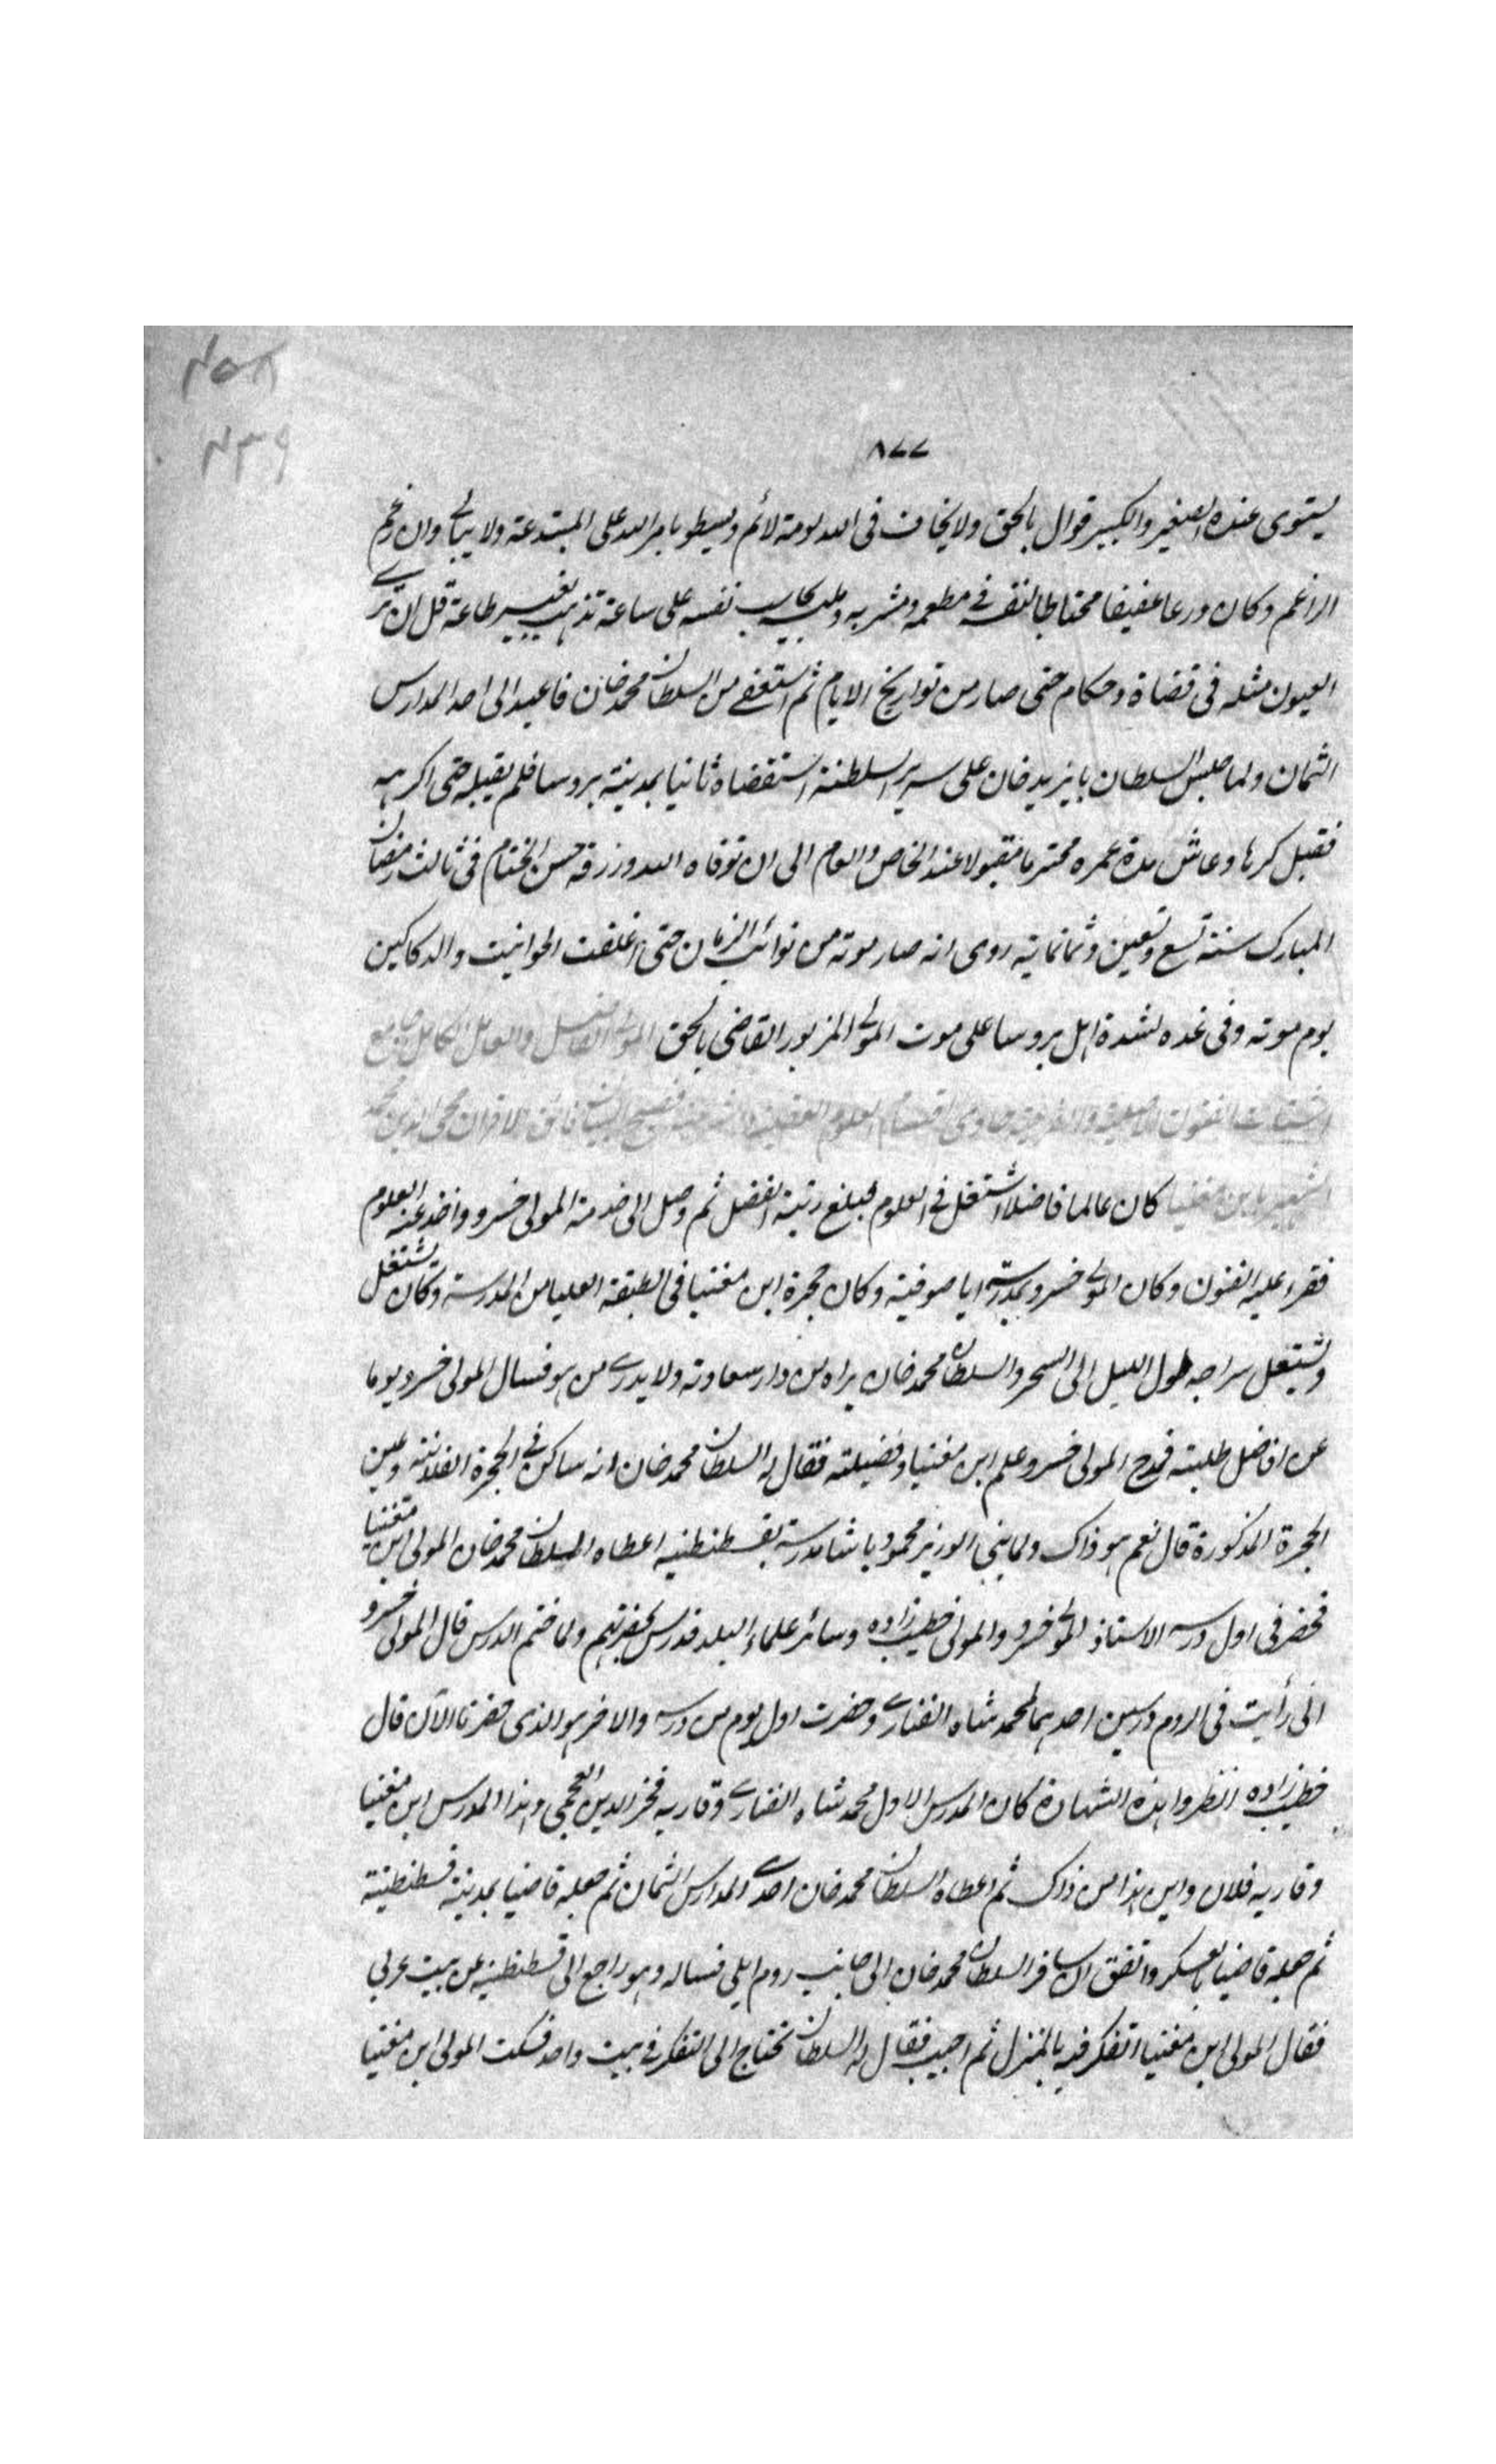 ٨٧٧
يستوى عنده الصغير والكبير قوال بالحق ولا يخاف فى الله لومة لائم ويسطو بامر الله على المبتدعة ولا يبالى وان رغم
الراغم وكان ورعا عفيفا محتاطا لنفسه فى مطعمه ومشربه وملبسه يحاسب نفسه على ساعة تذهب بغير طاعة قل ان ترى
العيون مثله فى قضاة وحكام حتى صار من تواريخ الايام ثم استعفى من السلطان محمد خان فاعيد الى احد المدارس
الثمان ولما جلس السلطان بايزيد خان على سرير السلطنة استقضاه ثانيا بمدينة بروسا فلم يقبله حتى اكرهه
فقبل كرها وعاش مدة عمره محترما مقبولا عند الخاص والعام الى ان توفاه الله ورزقه حسن الختام فى ثالث رمضان
المبارك سنة تسع وتسعين وثمانماية روى انه صار موته من نوائب الزمان حتى اغلقت الحوانيت والدكاكين
يوم موته وفى غده لشدة اهل بروسا على موت المولى المزبور القاضى بالحق المولى الفاضل والعامل الكامل جامع
اشتات الفنون الاصلية والفرعية حاوى اقسام العلوم العقلية والشرعية فصيح اللسان فائق الاقران محيى الدين محمد
الشهير بابن مغنيا كان عالما فاضلا اشتغل فى العلوم فبلغ رتبة الفضل ثم وصل الى خدمة المولى خسرو واخذ عنه العلوم
فقرء عليه الفنون وكان المولى خسرو بمدرسة ايا صوفية وكان حجرة ابن مغنيا فى الطبقة العليا من المدرسة وكان يشتغل
ويشتعل سراجه طول الليل الى السحر والسلطان محمد خان يراه من دار سعادته ولا يدرى من هو فسال المولى خسرو يوما
عن افاضل طلبته فمدح المولى خسرو علم ابن مغنيا وفضيلته فقال له السلطان محمد خان انه ساكن فى الحجرة الفلانية وعين
الحجرة المذكورة قال نعم هو ذاك ولما بنى الوزير محمود باشا مدرسة بقسطنطنيه اعطاه السلطان محمد خان المولى ابن مغنيا
فحضر فى اول درسه الاستاذ المولى خسرو والمولى خطيب زاده وسائر علماء البلد فدرس بحضرتهم ولما ختم الدرس قال المولى خسرو
انى رأيت فى الروم درسين احدهما لمحمد شاه الفنارى وحضرت اول يوم من درسه والاخر هو الذى حضرنا الآن قال
خطيب زاده انظروا هذه الشهادة كان المدرس الاول محمد شاه الفنارى وقاريه فخر الدين العجمى وهذا المدرس ابن مغنيا
وقاريه فلان واين هذا من ذاك ثم اعطاه السلطان محمد خان احدى المدارس الثمان ثم جعله قاضيا بمدينة قسطنطنية
ثم جعله قاضيا بالعسكر واتفق ان سافر السلطان محمد خان الى جانب روم ايلى فساله وهو راجع الى قسطنطنيه عن بيت عربى
فقال المولى ابن مغنيا اتفكر فيه بالمنزل ثم اجيب فقال له السلطان تحتاج الى التفكر فى بيت واحد فسكت المولى ابن مغنيا